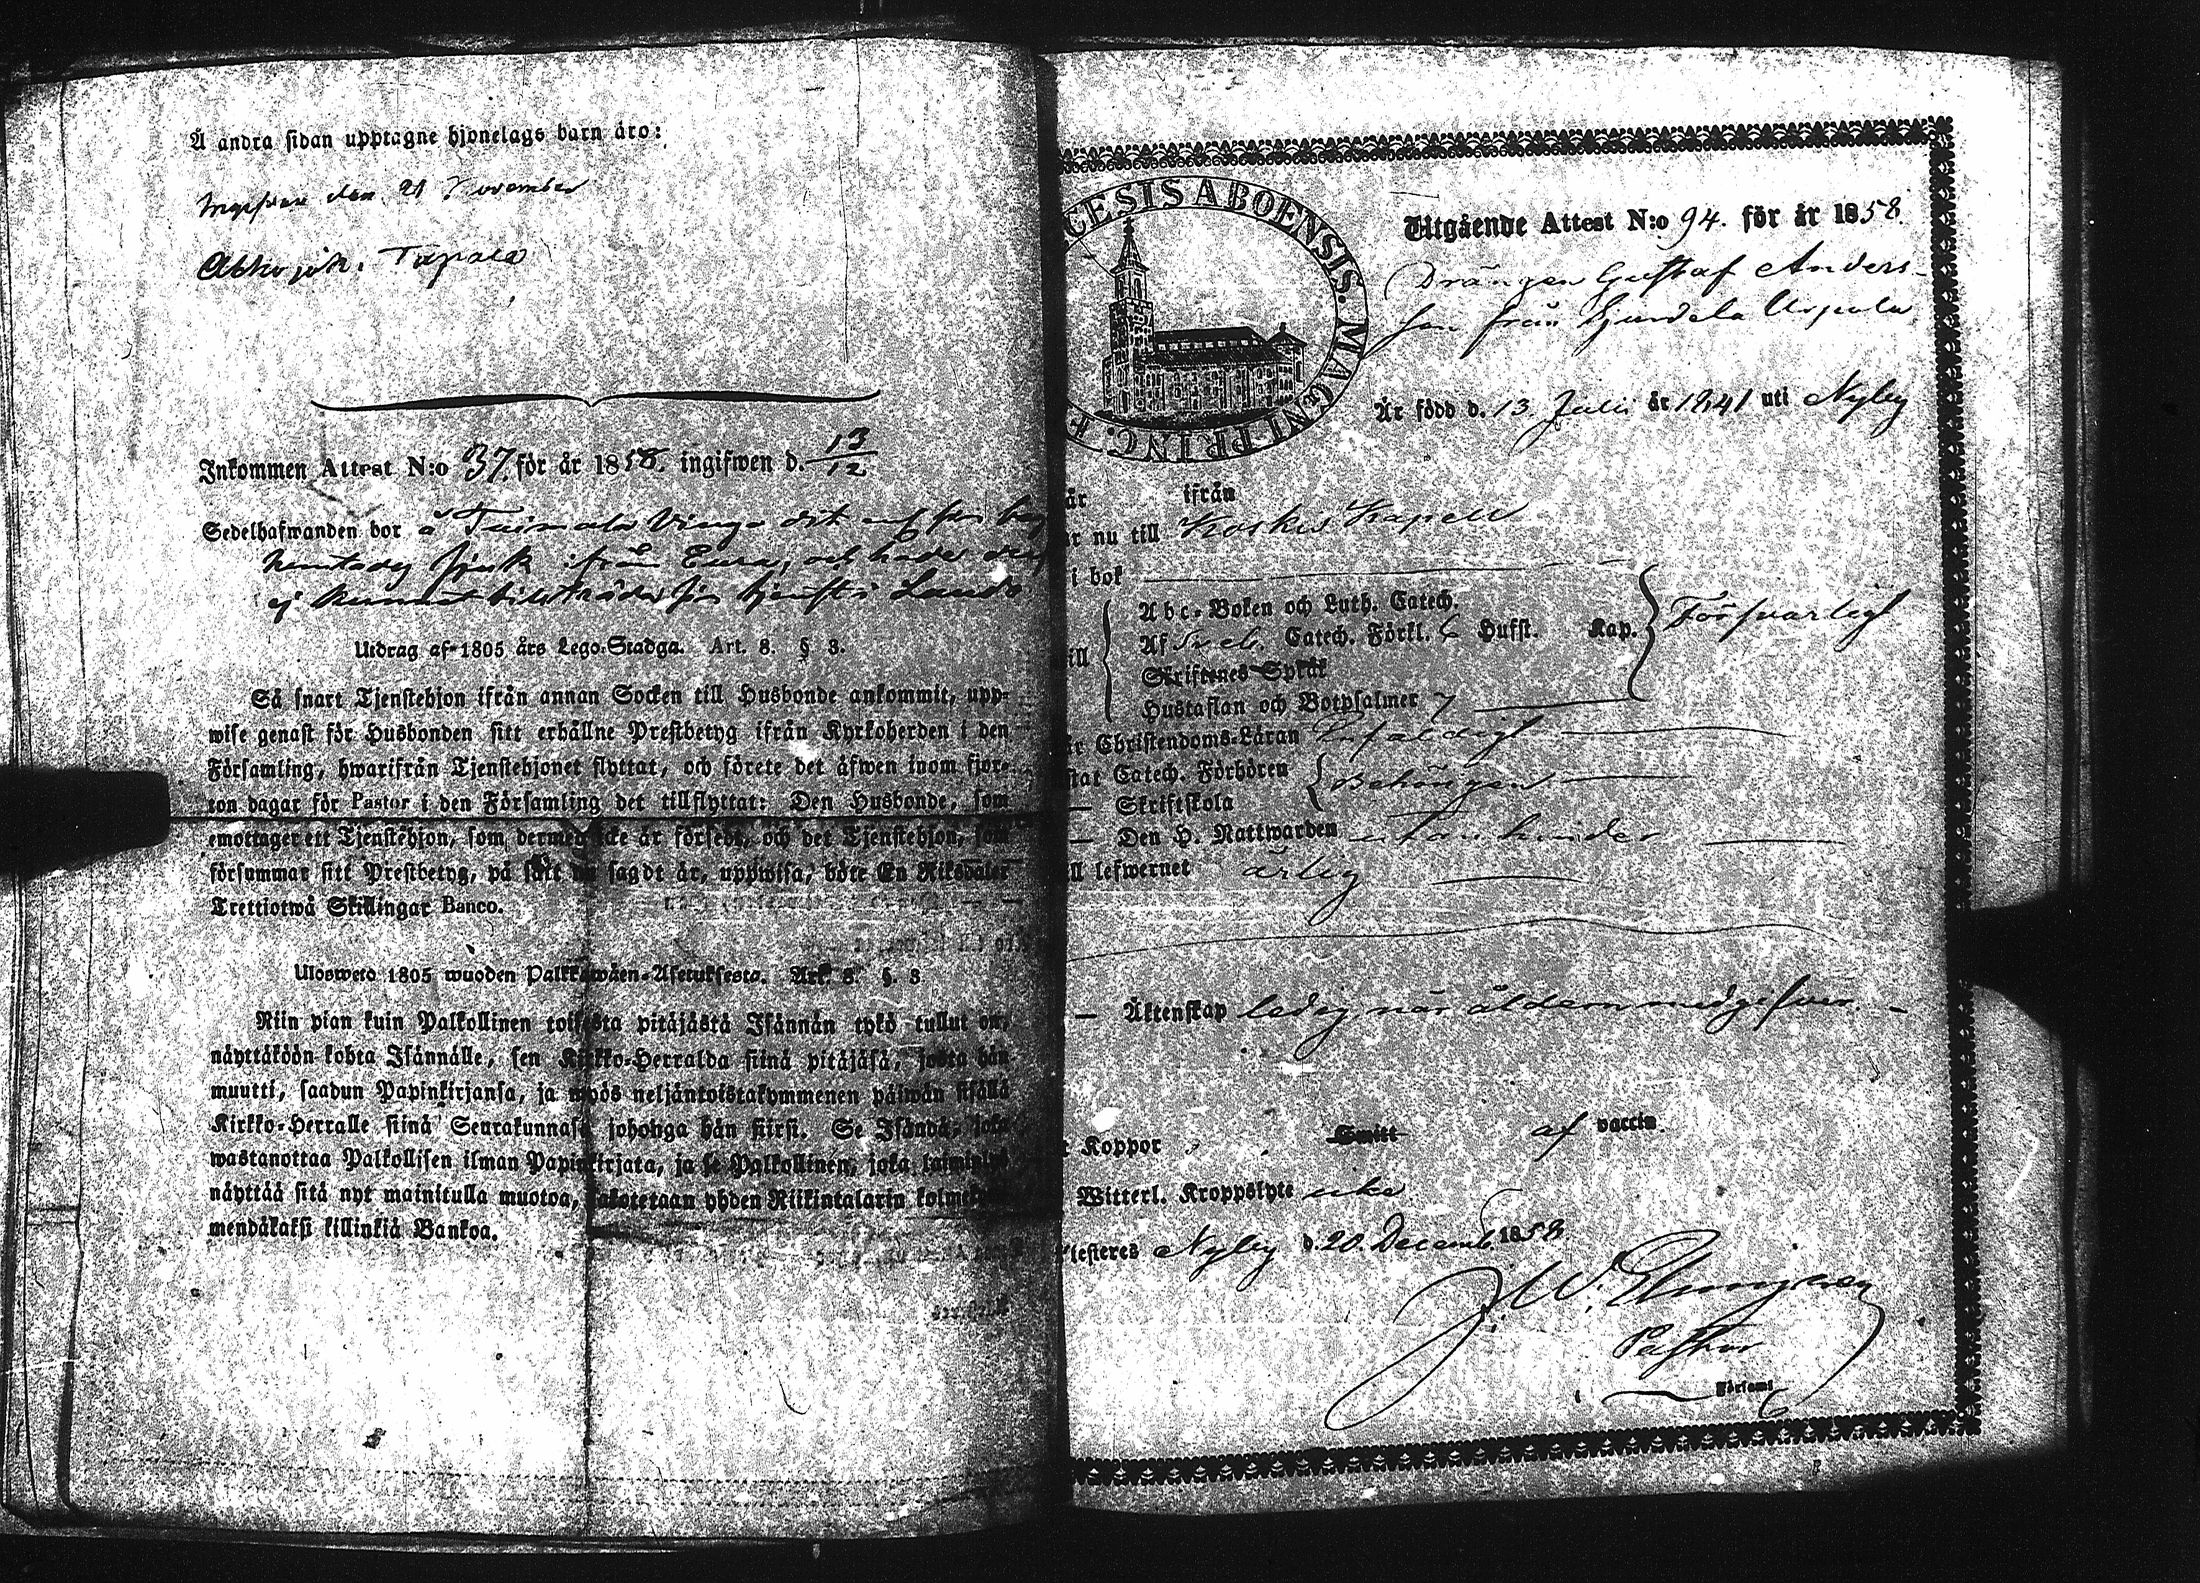 Å andra sidan upptagne hjonelags barn äro:
den 21 November
Inkommen Attest N:o 37. för år 1858. ingifwen d. 13/12
Sedelhafwanden bor å
sjuk ifrån Eura, och hade
ej
Utdrag af 1805 års Lego-Stadga. Art. 8. § 3.
Så snart Tjenstehjon ifrån annan Socken till Husbonde ankommit, upp-
wise genast för Husbonden sitt erhållne Prestbetyg ifrån Kyrkoherden i den
Församling, hwarifrån Tjenstehjonet flyttat, och förete det äfwen inom fjor-
ton dagar för Pastor i den Församling det tillflyttat: Den Husbonde, som
emottager ett Tjenstehjon, som dermed icke är försedt, och det Tjenstehjon, som
försummar sitt Prestbetyg, på sätt nu sagdt är, uppwisa, böte En Riksdaler
Trettiotwå Skillingar Banco.
Ulosweto 1805 wuoden Palkkawäen-Asetuksesta. Art. 8. §. 3.
Niin pian kuin Palkollinen toisesta pitäjästä Isännän tykö tullut on,
näyttäköön kohta Isännälle, sen Kirkko-Herralda siinä pitäjäsä, josta hän
muutti, saadun Papinkirjansa, ja myös neljäntoistakymmenen päiwän sisällä
Kirkko-Herralle siinä Seurakunnasa johonga hän siirsi. Se Isändä, joka
wastanottaa Palkollisen ilman Papinkirjata, ja se Palkollinen, joka laiminlyö
näyttää sitä nyt mainitulla muotoa, sakotetaan yhden Riikintalarin kolmekym-
mendäkaksi killinkiä Bankoa.
CESIS ABOENSIS. MAGNI PRINC. F
Utgående Attest N:o 94. för år 1858.
Drängen Gustaf Anders-
son från
Är född d. 13 Juli år 1841 uti Nyby
är ifrån
r nu till Koskis Kapell
i bok
Abc-Boken och Luth. Catech.
ill Af Sveb. Catech. Förkl. Hufst. Kap. Försvarligt
Skriftenes Språk
Hustaflan och Botpsalmer 7
r Christendoms-Läran Enfaldigt
stat Catech. Förhören Behörigen
— Skriftskola
— Den H. Nattwarden utan hinder
ll lefwernet ärlig
— Äktenskap ledig när åldern medgifver.
t Koppor Smitt af vaccin.
Witterl. Kroppslyte icke
testeres Nyby d. 20. Decemb. 1858
J. W.
Pastor
Församl